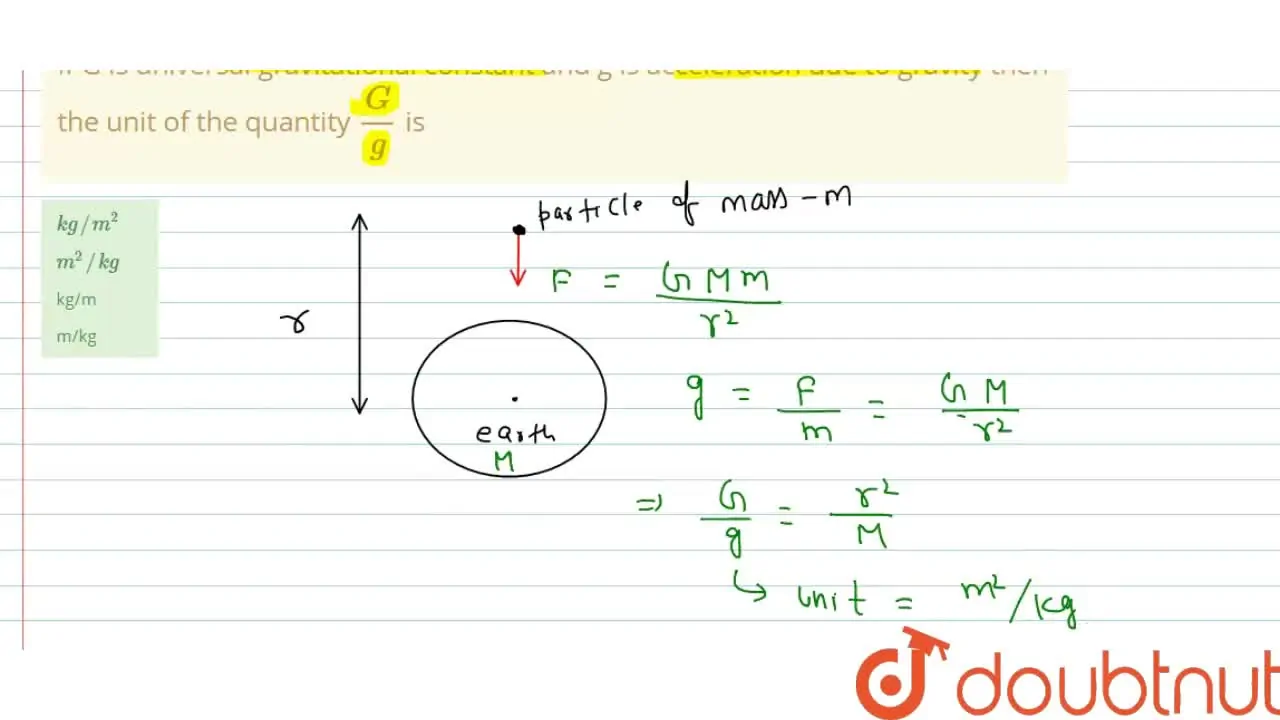 If G is universal gravitational constant and g is acceleration due to gravity then
the unit of the quantity G/g is
kg/m²
m²/kg
kg/m
m/kg
particle of mass - m
r
F = GMm/r²
g = F/m = GM/r²
earth
M
⇒ G/g = r²/M
↳ unit = m²/kg
doubtnut